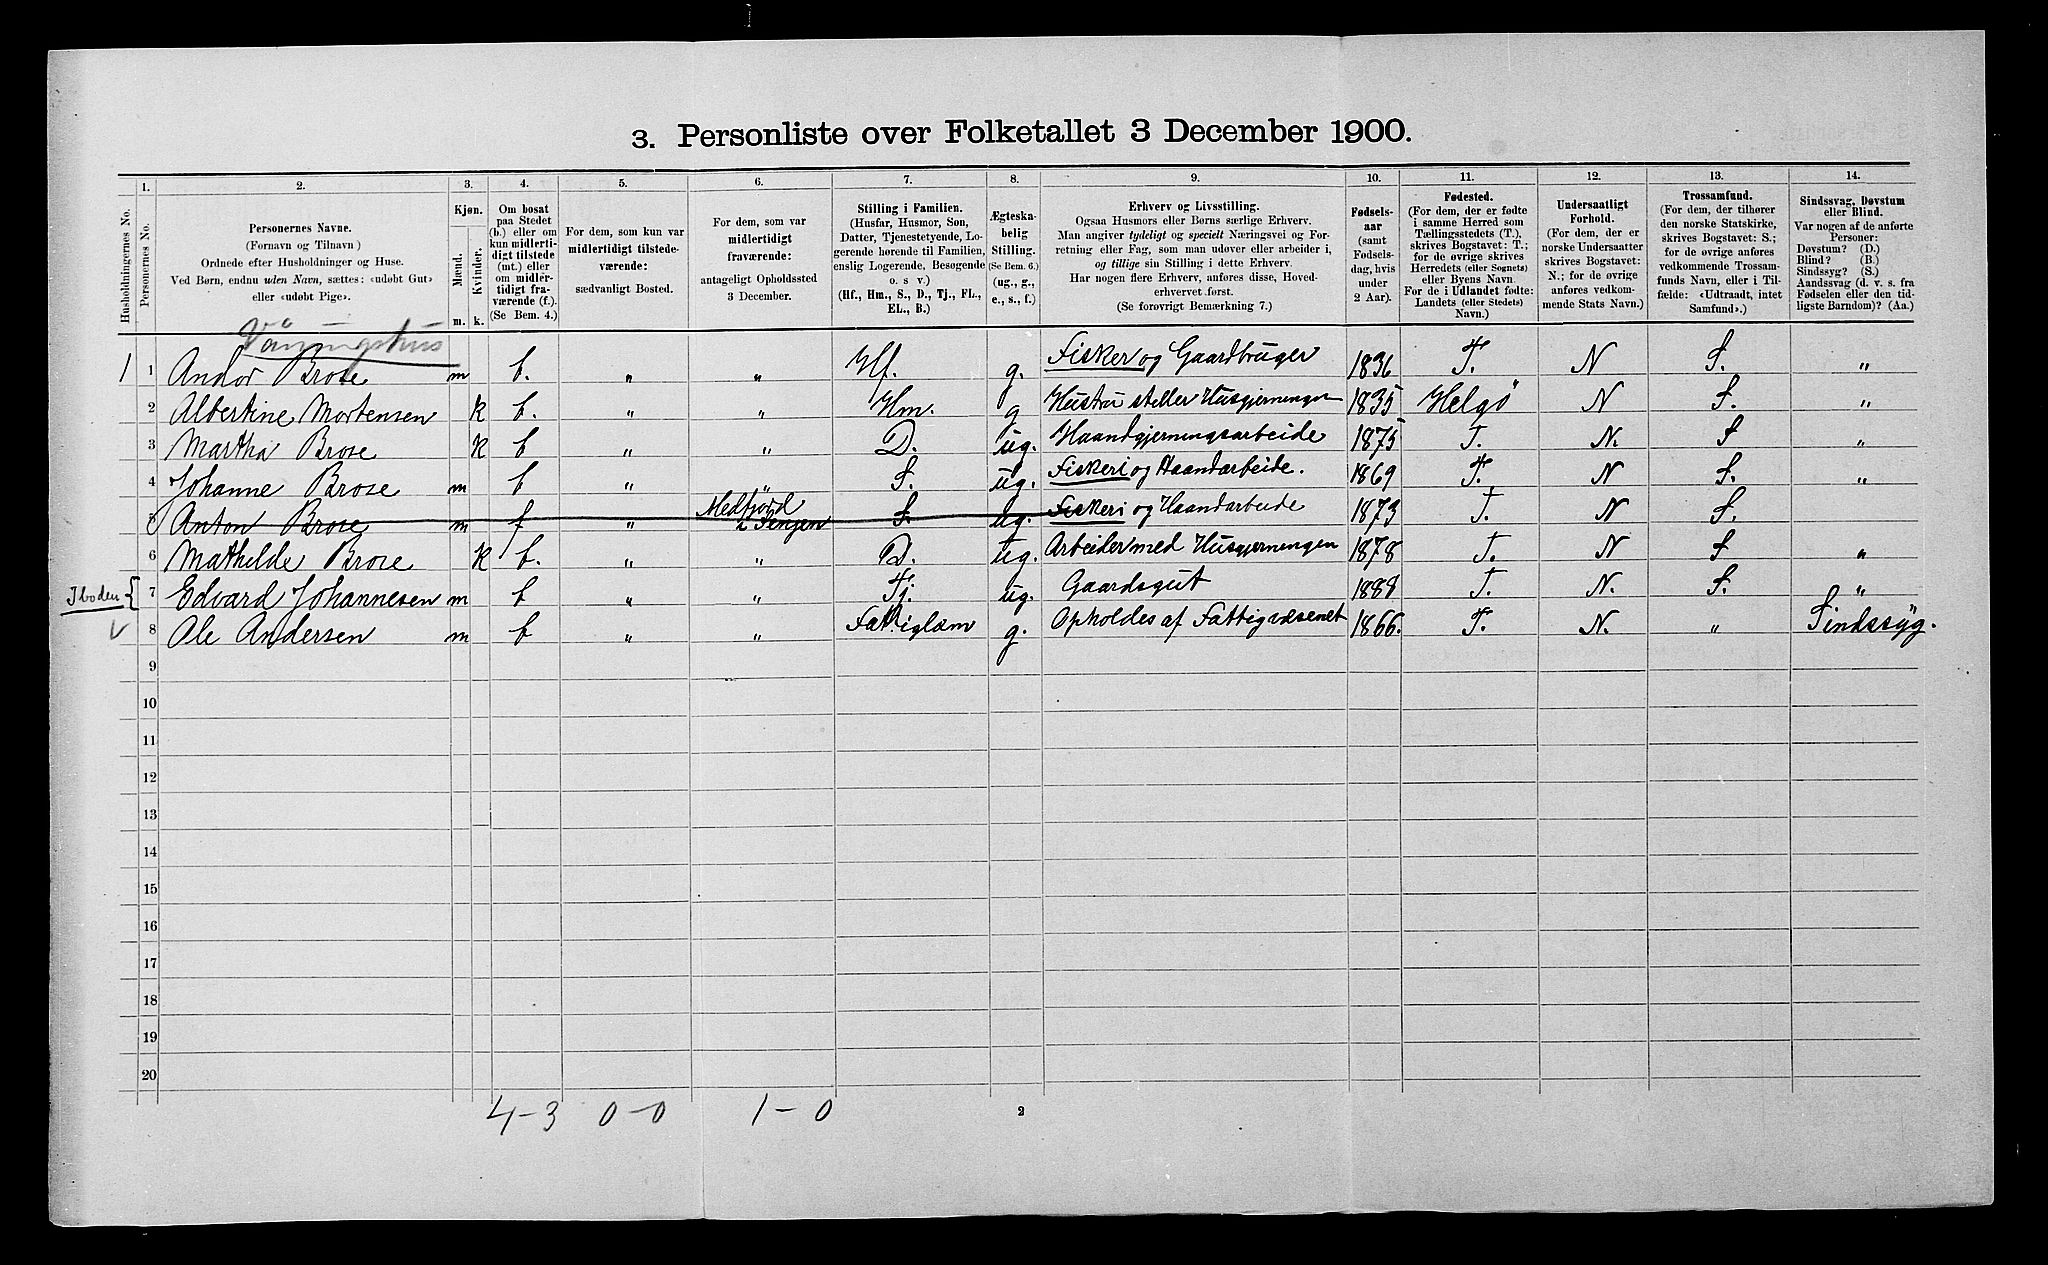 3. Personliste over Folketallet 3 December 1900.
1. 2. 3. 4. 5. 6. 7. 8. 9. 10. 11. 12. 13. 14.
Husholdningernes No.
Personernes No.
Personernes Navne.
(Fornavn og Tilnavn)
Ordnede efter Husholdninger og Huse.
Ved Børn, endnu uden Navn, sættes: «udøbt Gut»
eller «udøbt Pige».
Kjøn.
Mænd.
Kvinder.
m. k.
Om bosat
paa Stedet
(b.) eller om
kun midlerti-
digt tilstede
(mt.) eller
om midler-
tidigt fra-
værende (f.).
(Se Bem. 4.)
For dem, som kun var
midlertidigt tilstede-
værende:
sædvanligt Bosted.
For dem, som var
midlertidigt
fraværende:
antageligt Opholdssted
3 December.
Stilling i Familien.
(Husfar, Husmor, Søn,
Datter, Tjenestetyende, Lo-
gerende hørende til Familien,
enslig Logerende, Besøgende
o. s v.)
(Hf., Hm., S., D., Tj., FL.,
EL., B.)
Ægteska-
belig
Stilling.
(Se Bem. 6.)
(ug., g.,
e., s., f.)
Erhverv og Livsstilling.
Ogsaa Husmors eller Børns særlige Erhverv.
Man angiver tydeligt og specielt Næringsvei og For-
retning eller Fag, som man udøver eller arbeider i,
og tillige sin Stilling i dette Erhverv.
Har nogen flere Erhverv, anføres disse, Hoved-
erhvervet først.
(Se forøvrigt Bemærkning 7.)
Fødsels-
aar
(samt
Fødsels-
dag, hvis
under
2 Aar).
Fødested.
(For dem, der er fødte
i samme Herred som
Tællingsstedets (T.),
skrives Bogstavet: T.;
for de øvrige skrives
Herredets (eller Sognets)
eller Byens Navn.
For de i Udlandet fødte:
Landets (eller Stedets)
Navn.)
Undersaatligt
Forhold.
(For dem, der er
norske Undersaatter
skrives Bogstavet:
N.; for de øvrige
anføres vedkom-
mende Stats Navn.)
Trossamfund.
(For dem, der tilhører
den norske Statskirke,
skrives Bogstavet: S.;
for de øvrige anføres
vedkommende Trossam-
funds Navn, eller i Til-
fælde: «Udtraadt, intet
Samfund».)
Sindssvag, Døvstum
eller Blind.
Var nogen af de anførte
Personer:
Døvstum? (D.)
Blind? (B.)
Sindssyg? (S.)
Aandssvag (d. v. s. fra
Fødselen eller den tid-
ligste Barndom)? (Aa.)
Vaaningshus
1 1 Andor Brose m b. " " Hf. g. Fisker og Gaardbruger 1836 T. N S. "
2 Albertine Mortensen k b. " " Hm. g Hustru steller Husgjerningen 1835 Helgö N S. "
3 Martha Brose k b " " D. ug. Haandgjerningsarbeide 1875 T. N. S "
4 Johanne Brose m b " " S. ug. Fiskeri og Haandarbeide. 1869 T. N S. "
5 Anton Brose m f " Medfjord i Senjen S. ug. Fiskeri og Haandarbeide 1873 T. N S.
6 Mathelde Brose k b. " " D. ug. Arbeider med Husgjerningen 1878 T. N S "
Iboden { 7 Edvard Johannesen m b " " Tj. ug. Gaardsgut 1888 T. N. S. "
8 Ole Andersen m b " " Fattiglæm g. Opholdes af Fattigvæsenet 1866. T. N. " Sindssÿg.
9
10
11
12
13
14
15
16
17
18
19
20
4-3 0-0 1-0 2